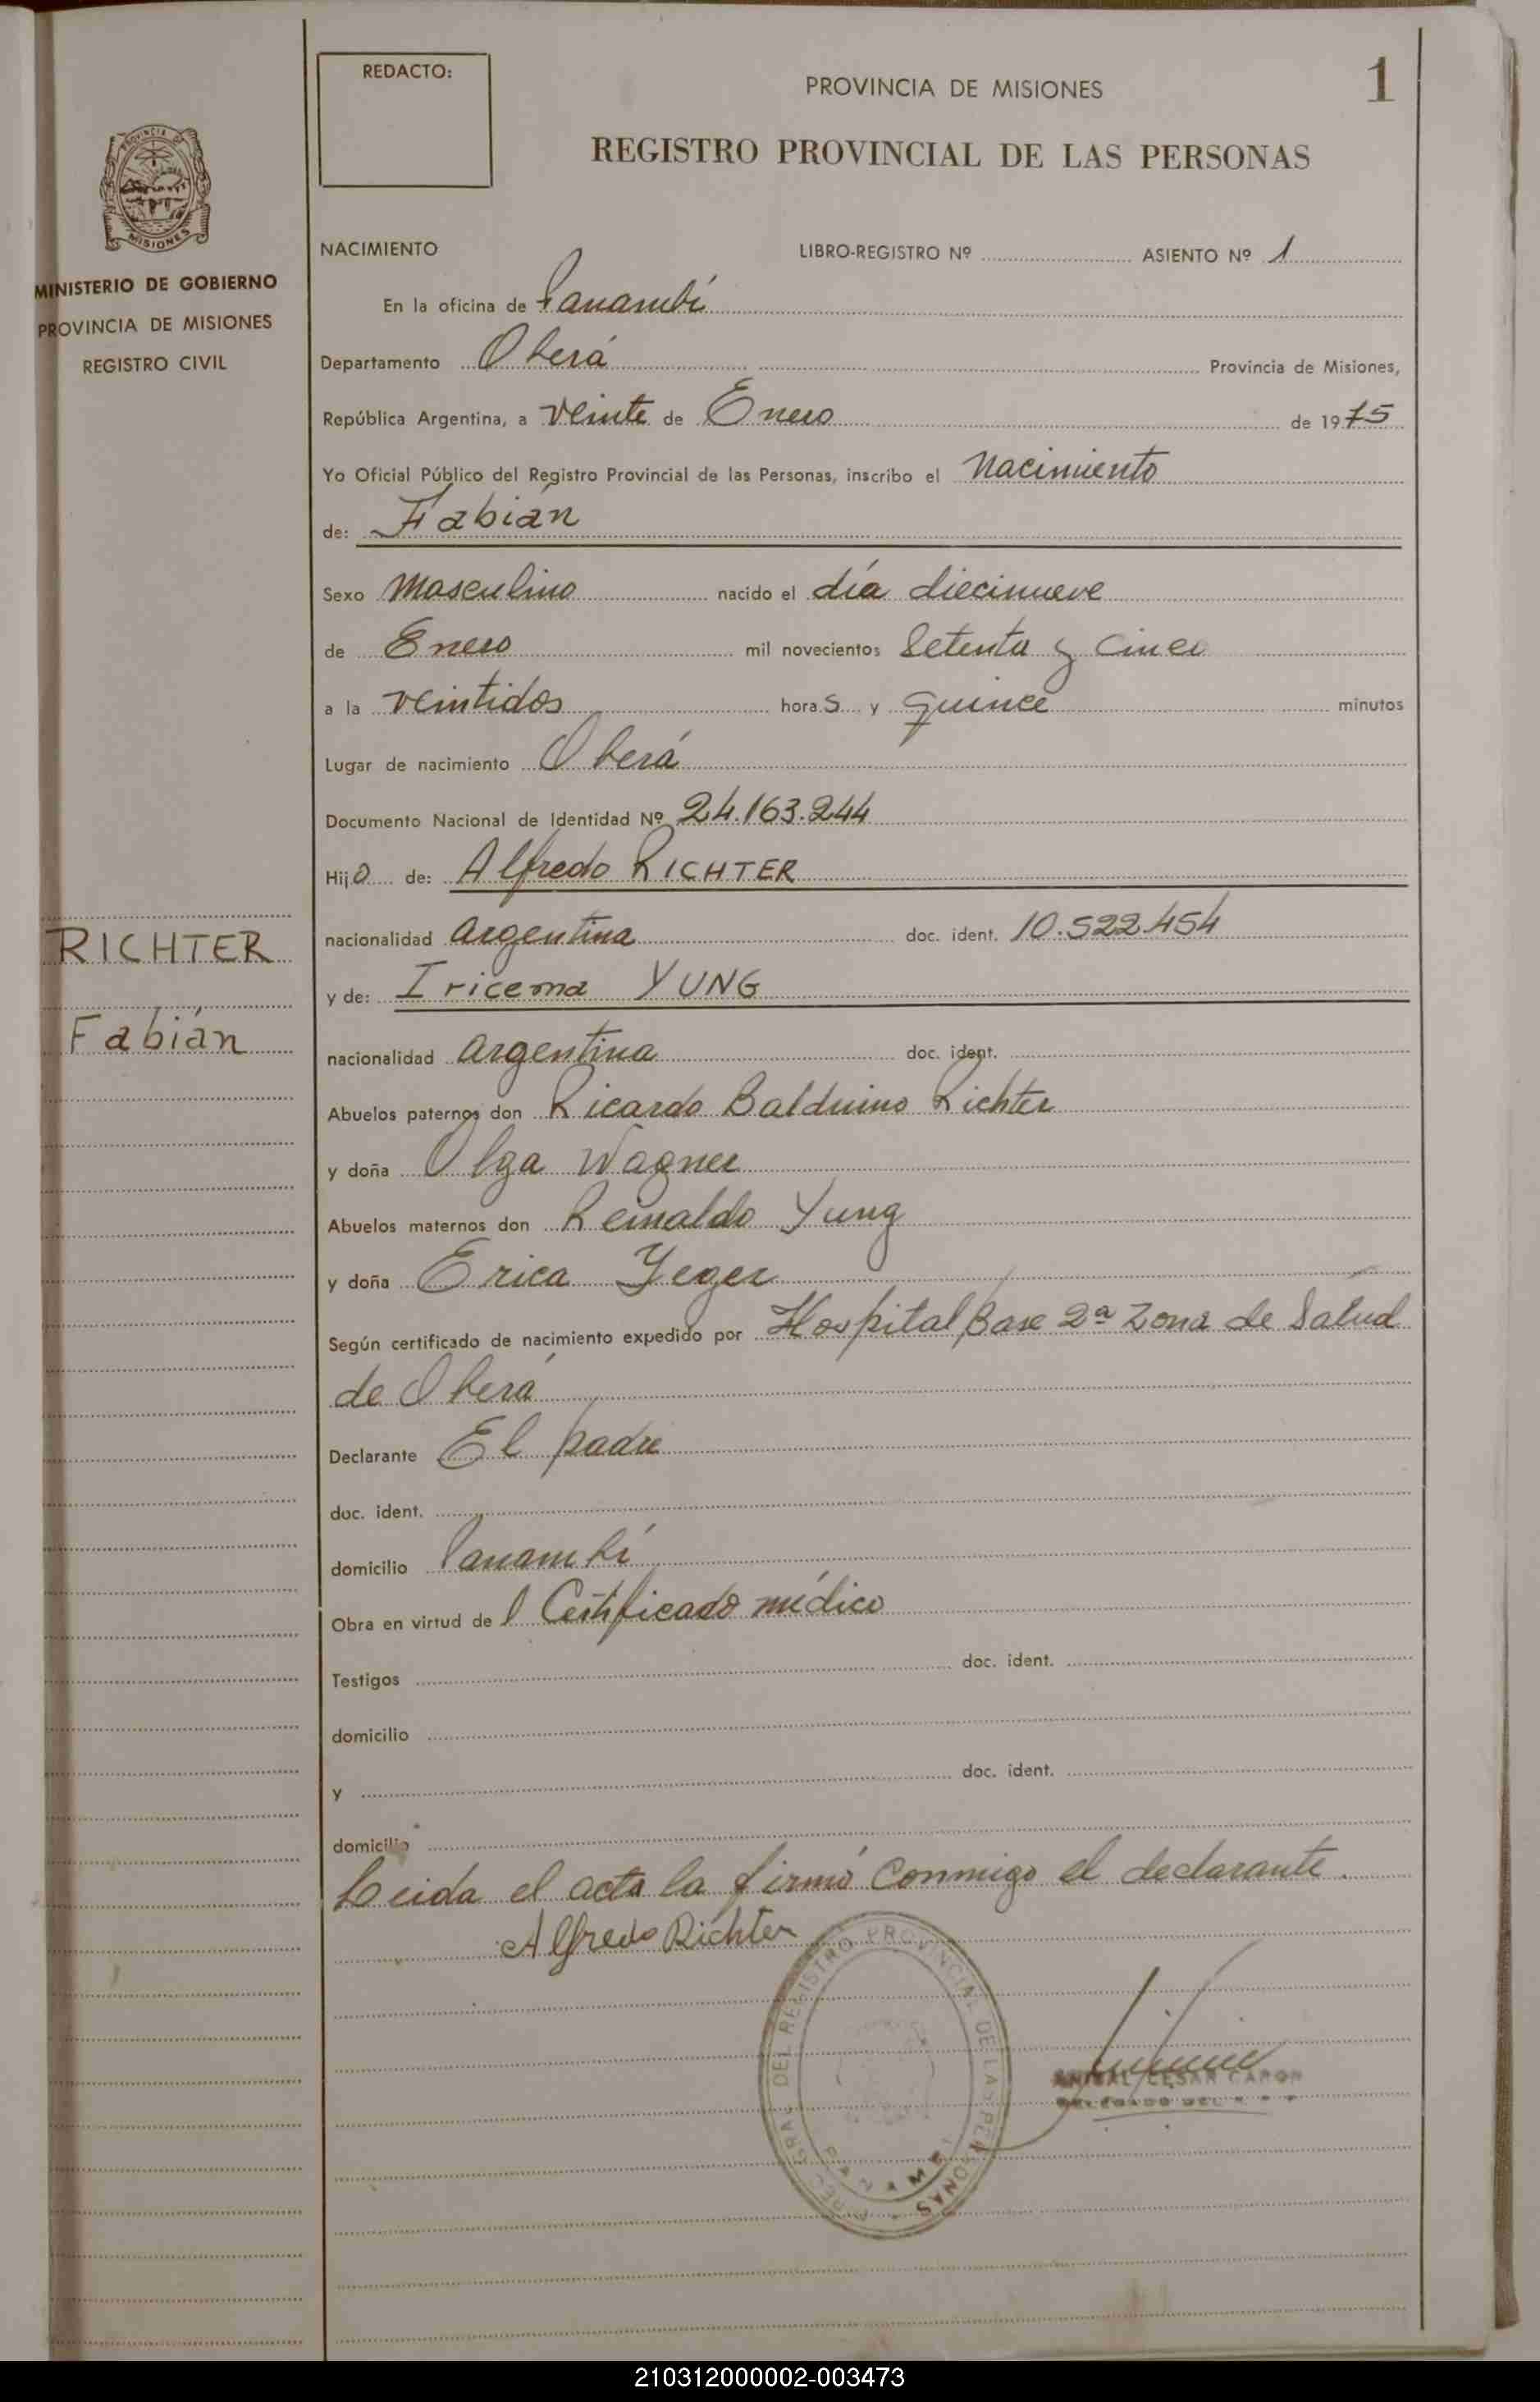 REDACTO:
PROVINCIA DE MISIONES
1
REGISTRO PROVINCIAL DE LAS PERSONAS
PROVINCIA DE
MISIONES
MINISTERIO DE GOBIERNO
PROVINCIA DE MISIONES
REGISTRO CIVIL
NACIMIENTO LIBRO-REGISTRO Nº ASIENTO Nº 1
En la oficina de Panambí
Departamento Oberá Provincia de Misiones,
República Argentina, a veinte de Enero de 1975
Yo Oficial Público del Registro Provincial de las Personas, inscribo el Nacimiento
de: Fabián
Sexo Masculino nacido el día diecinueve
de Enero mil novecientos Setenta y Cinco
a la veintidos horas y quince minutos
Lugar de nacimiento Oberá
Documento Nacional de Identidad Nº 24.163.244
Hijo de: Alfredo RICHTER
nacionalidad argentina doc. ident. 10.522.454
y de: Iricema YUNG
nacionalidad argentina doc. ident.
RICHTER
Fabián
Abuelos paternos don Ricardo Balduino Richter
y doña Olga Wagner
Abuelos maternos don Reinaldo Yung
y doña Erica Yeger
Según certificado de nacimiento expedido por Hospital Base 2ª Zona de Salud
de Oberá
Declarante El padre
doc. ident.
domicilio Panambí
Obra en virtud del Certificado médico
Testigos doc. ident.
domicilio
y doc. ident.
domicilio
Leida el acta la firmó conmigo el declarante.
Alfredo Richter
DEL REGISTRO PROVINCIAL DE LAS PERSONAS
PANAMBI
ANIBAL CESAR CARON
DELEGADO DEL R. P. P.
210312000002-003473